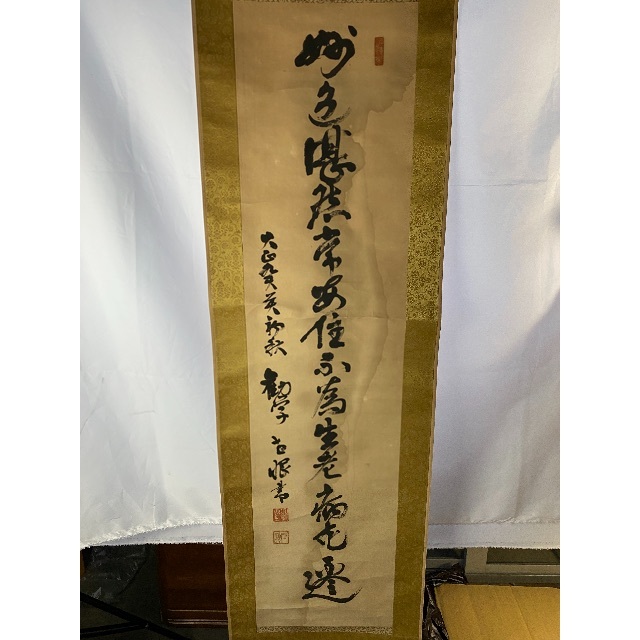 妙色湛然常安住不為生老病死遷
大正癸亥初秋 勧学 書